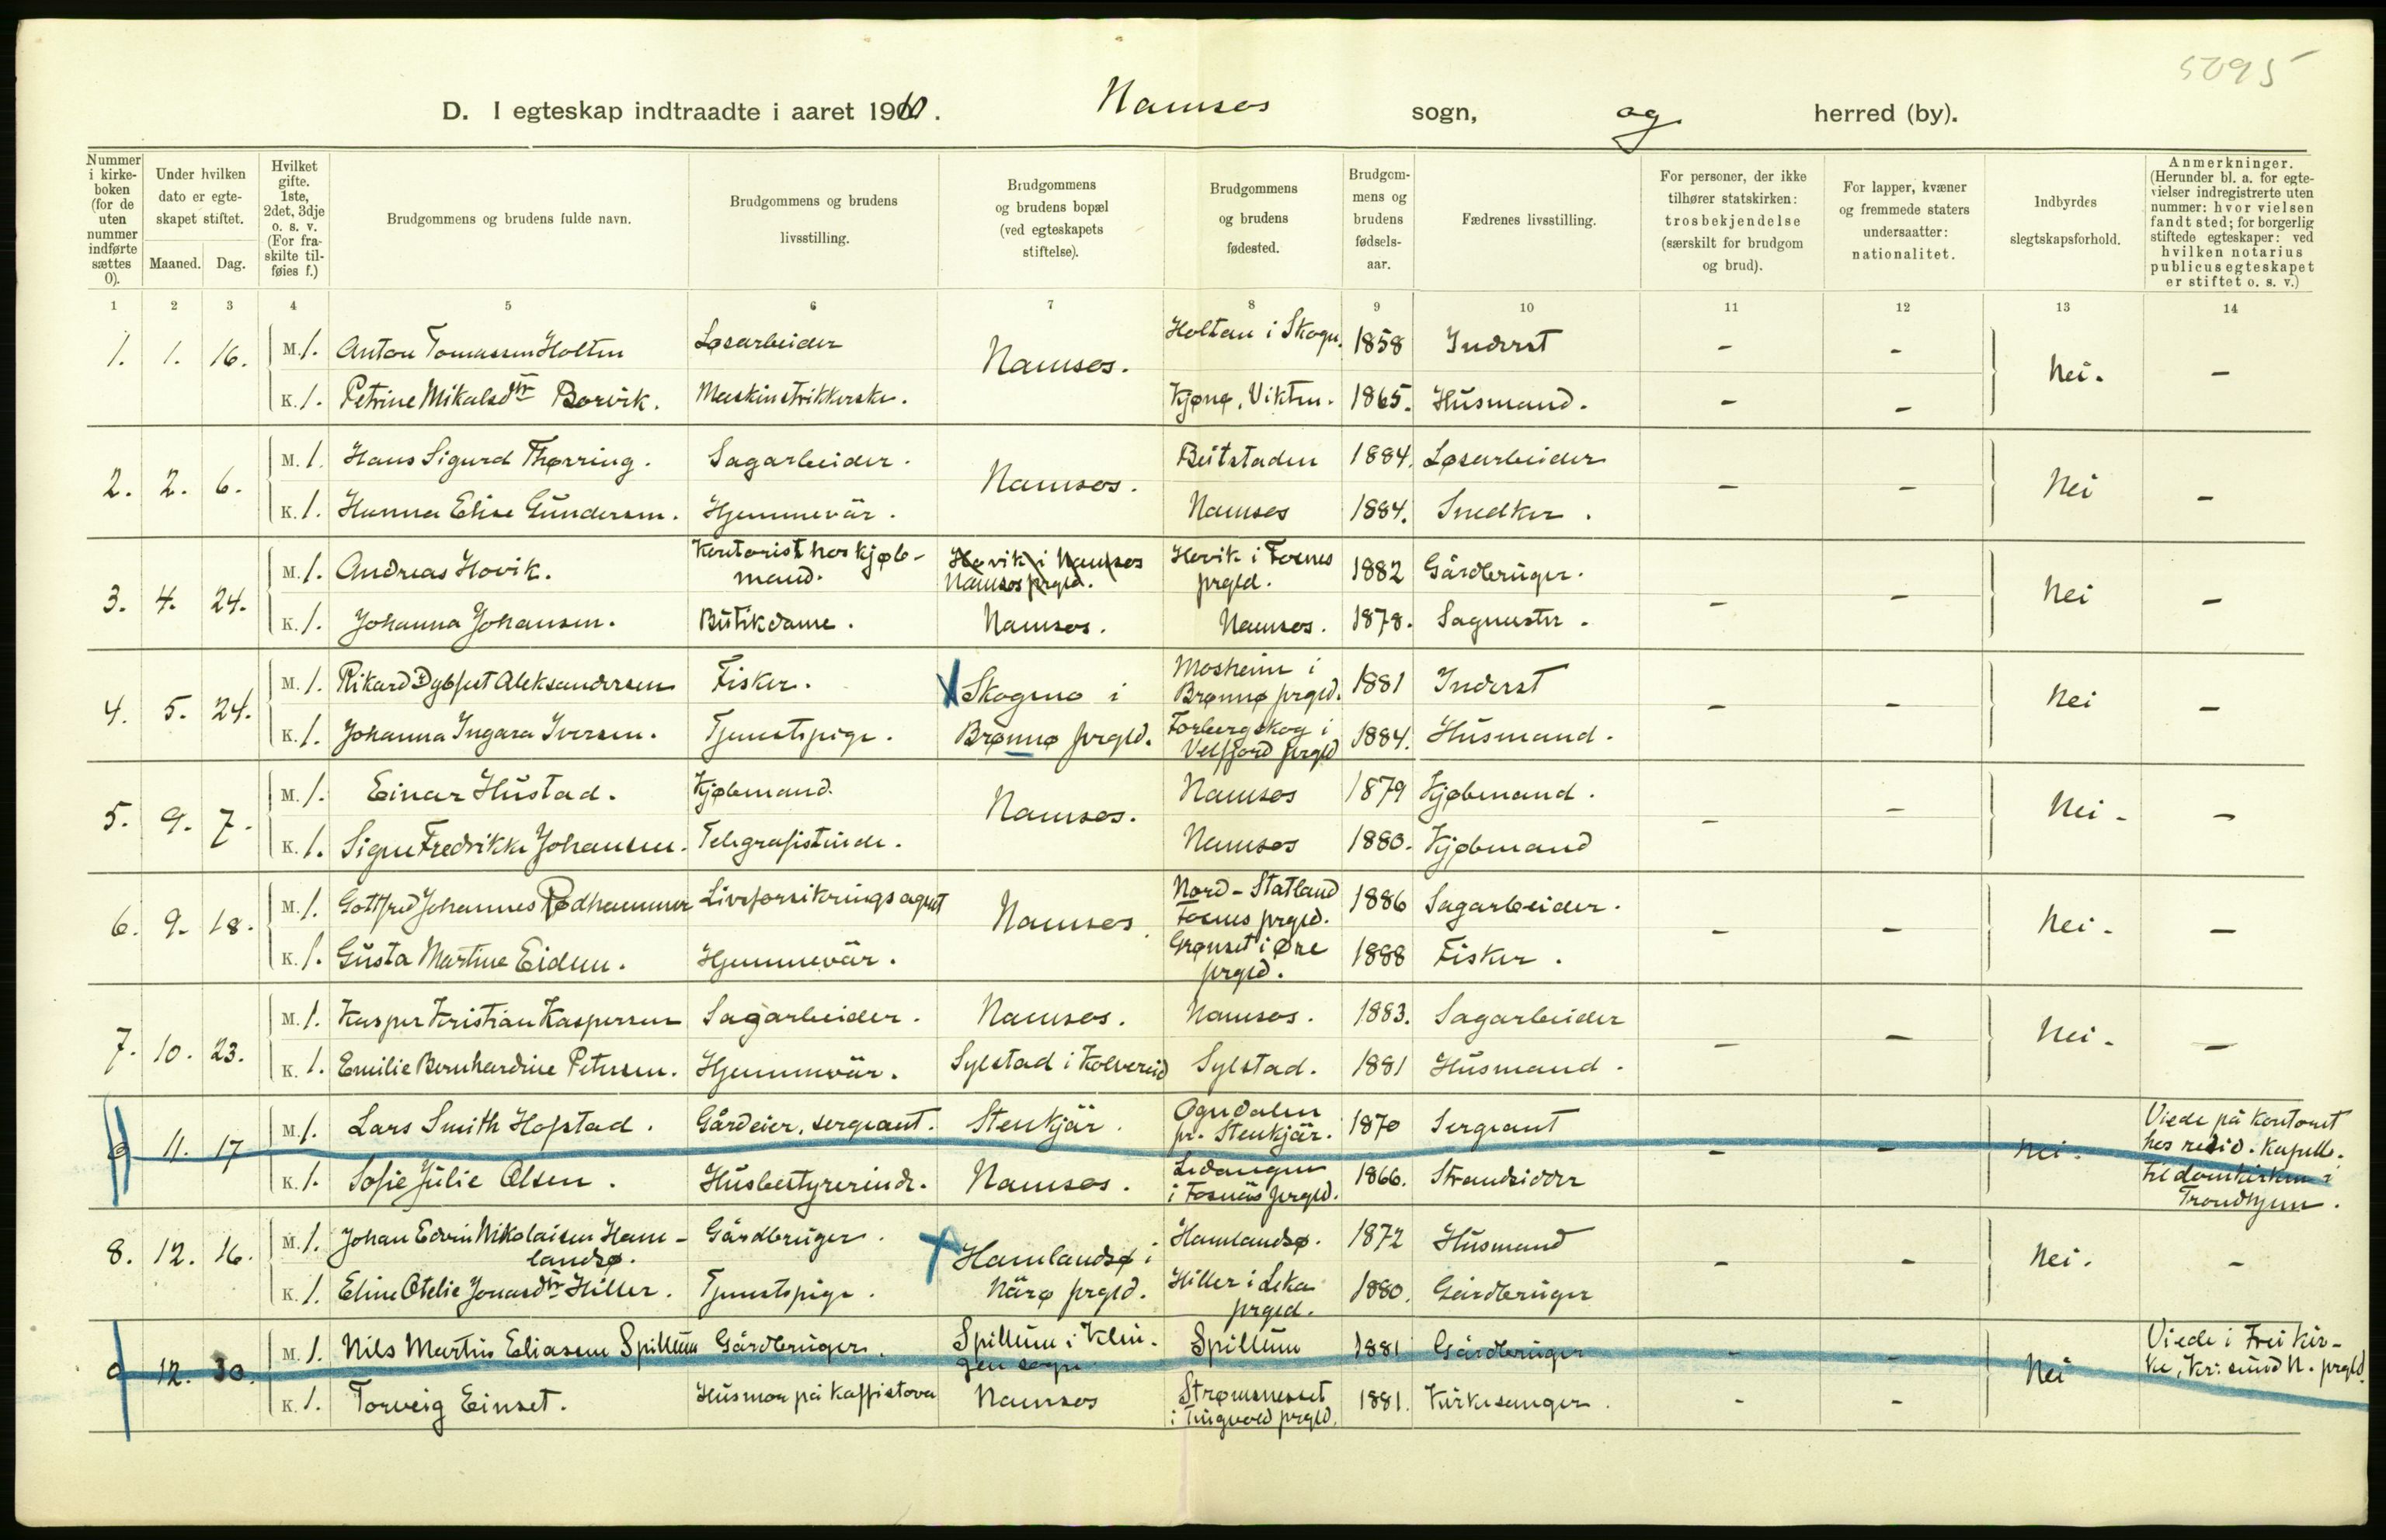 5295
D. I egteskap indtraadte i aaret 1910. Namsos sogn, og herred (by).
Nummer i kirke-boken (for de uten nummer indførte sættes 0).
Under hvilken dato er egte-skapet stiftet.
Maaned. Dag.
Hvilket gifte. 1ste, 2det, 3dje o. s. v. (For fra-skilte til-føies f.)
Brudgommens og brudens fulde navn.
Brudgommens og brudens livsstilling.
Brudgommens og brudens bopæl (ved egteskapets stiftelse).
Brudgommens og brudens fødested.
Brudgom-mens og brudens fødsels-aar.
Fædrenes livsstilling.
For personer, der ikke tilhører statskirken: trosbekjendelse (særskilt for brudgom og brud).
For lapper, kvæner og fremmede staters undersaatter: nationalitet.
Indbyrdes slegtskapsforhold.
Anmerkninger. (Herunder bl. a. for egte-vielser indregistrerte uten nummer: hvor vielsen fandt sted; for borgerlig stiftede egteskaper: ved hvilken notarius publicus egteskapet er stiftet o. s. v.)
1 2 3 4 5 6 7 8 9 10 11 12 13 14
1. 1. 16. M. 1. Anton Tomassen Holten Løsarbeider Namsos. Holtan i Skogn. 1858 Inderst - - Nei. -
K. 1. Petrine Mikalsdtr Borvik. Maskinstrikkerske. Kjønø, Vikten. 1865. Husmand. - -
2. 2. 6. M. 1. Hans Sigurd Thørring. Sagarbeider. Namsos. Beitstaden 1884. Løsarbeider - - Nei -
K. 1. Hanna Elise Gundersen. Hjemmevär. Namsos 1884. Snedker.
3. 4. 24. M. 1. Andreas Hovik. Kontorist hos kjøb-mand. Hovik i Namsos Namsos prgld. Hovik i Fosnes prgld. 1882 Gårdbruger. - - Nei -
K. 1. Johanna Johansen. Butikdame. Namsos. Namsos. 1878. Sagmester.
4. 5. 24. M. 1. Rikard Dybfest Aleksandersen Fisker. X Skogmo i Brønnø prgld. Mosheim i Brønnø prgld. 1881 Inderst - - Nei -
K. 1. Johanna Ingara Iversen. Tjenestpige. Forbergskog i Velfjord prgld 1884. Husmand.
5. 9. 7. M. 1. Einar Hustad. Kjøbmand. Namsos. Namsos 1879 Kjøbmand. - - Nei. -
K. 1. Signe Fredrikke Johansen. Telegrafistinde. Namsos 1880. Kjøbmand
6. 9. 18. M. 1. Gottfred Johannes Rødhammer Livsforsikringsagent Namsos. Nord-Statland Fosnes prgld. 1886 Sagarbeider. - - Nei. -
K. 1. Gusta Martine Eidem. Hjemmevär. Grønset i Øre prgld. 1888 Fisker.
7. 10. 23. M. 1. Kasper Kristian Kaspersen Sagarbeider. Namsos. Namsos. 1883. Sagarbeider - - Nei. -
K. 1. Emilie Bernhardine Petersen. Hjemmevär. Sylstad i Kolvereid Sylstad. 1881 Husmand.
0 11. 17 M. 1. Lars Smith Hofstad. Gårdeier, sergeant. Stenkjär. Ogndalen pr. Stenkjär. 1870 Sergeant - - Nei. Viede på kontoret hos resid. kapell. til domkirken i Trondhjem.
K. 1. Sofie Julie Olsen. Husbestyrerinde. Namsos. i Fosnäs prgld. 1866. Strandsidder
8. 12. 16. M. 1. Johan Edvin Nikolaisen Ham-landsø. Gårdbruger. X Hamlandsø i Närø prgld. Hamlandsø. 1872 Husmand - - Nei. -
K. 1. Eline Otelie Jonasdtr Hiller. Tjenestpige. Hiller i Leka prgld. 1880. Gårdbruger
0 12. 30. M. 1. Nils Martin Eliasen Spillum Gårdbruger. Spillum i Klin-gen sogn Spillum 1881 Gårdbruger - - Nei Viede i Frei kir-ke, Kr:sund N. prgld.
K. 1. Torveig Einset. Husmor på Kaffistova Namsos Strømsnesset i Tingvold prgld. 1881. Kirkesanger. - -